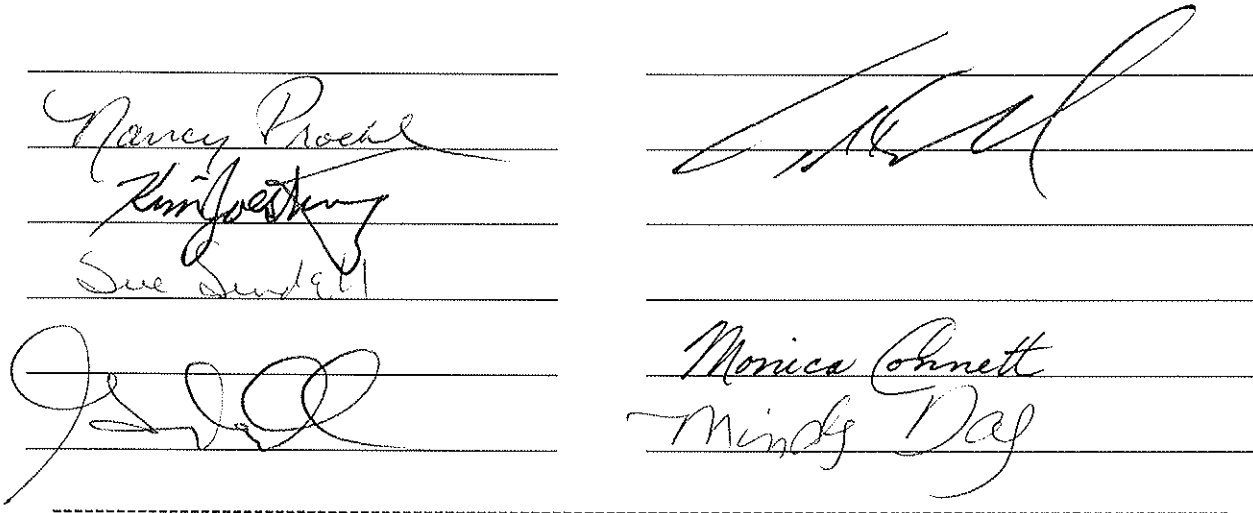 Nancy Proehl
Kim Joesting
Sue Sundell
Monica Connett
Mindy Day